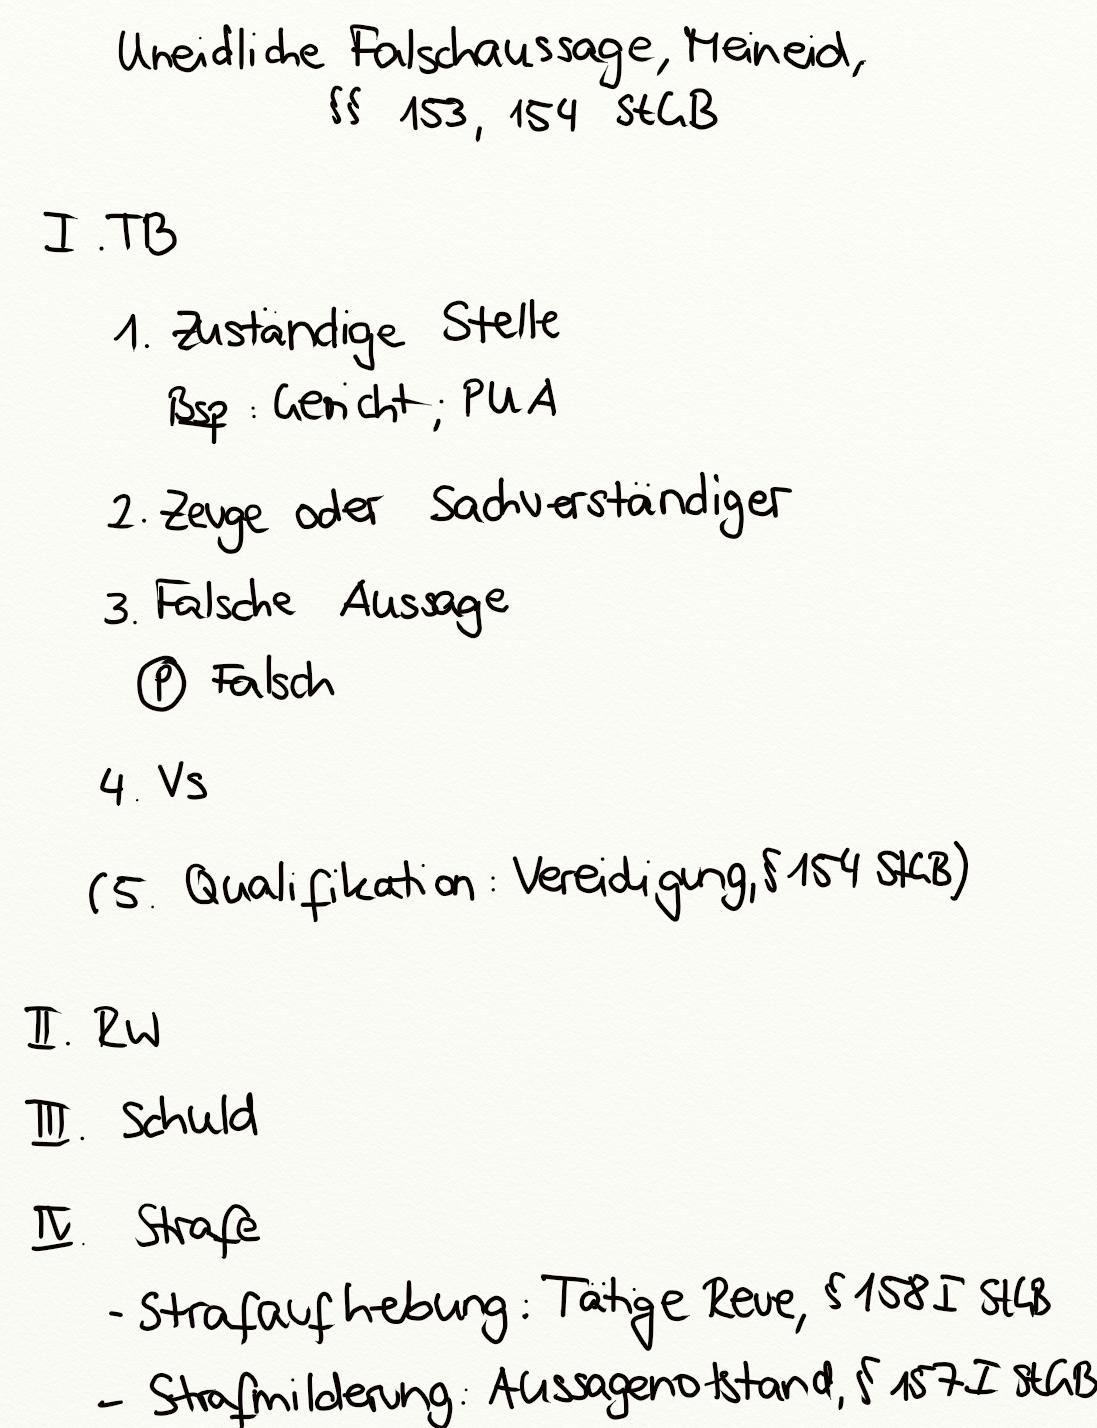 Uneidliche Falschaussage, Meineid,
§§ 153, 154 StGB
I. TB
1. Zuständige Stelle
Bsp: Gericht; PUA
2. Zeuge oder Sachverständiger
3. Falsche Aussage
Ⓟ Falsch
4. Vs
(5. Qualifikation: Vereidigung, § 154 StGB)
II. RW
III. Schuld
IV. Strafe
- Strafaufhebung: Tätige Reue, § 158 I StGB
- Strafmilderung: Aussagenotstand, § 157 I StGB